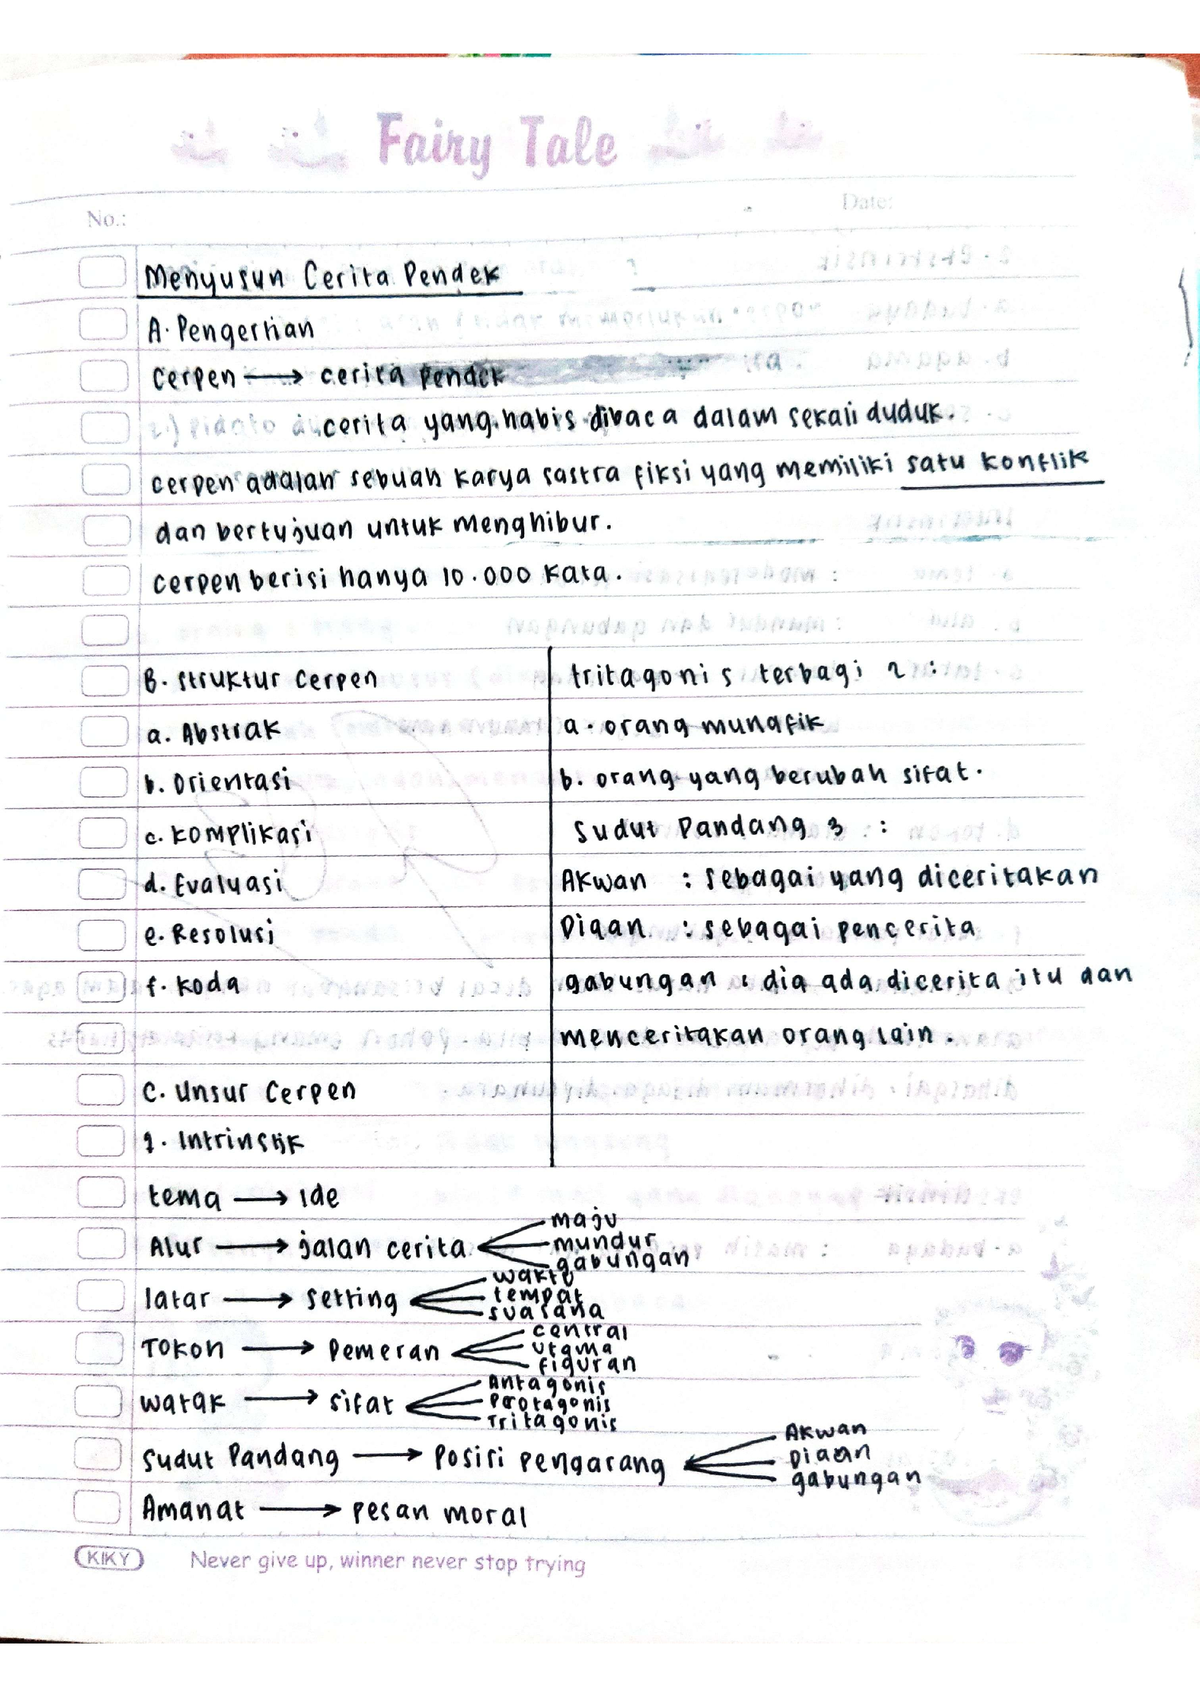 Fairy Tale
No.:
Date:
Menyusun Cerita Pendek
A. Pengertian
Cerpen → cerita pendek
cerita yang habis dibaca dalam sekali duduk.
cerpen adalah sebuah karya sastra fiksi yang memiliki satu konflik
dan bertujuan untuk menghibur.
cerpen berisi hanya 10.000 kata.
B. Struktur Cerpen
a. Abstrak
b. Orientasi
c. Komplikasi
d. Evaluasi
e. Resolusi
f. Koda
C. Unsur Cerpen
1. Intrinstik
tritagonis terbagi 2 :
a. orang munafik
b. orang yang berubah sifat.
Sudut Pandang 3 :
AKwan : sebagai yang diceritakan
Diaan : sebagai pencerita
gabungan : dia ada dicerita itu dan
menceritakan orang lain.
tema → ide
Alur → jalan cerita
maju
mundur
gabungan
latar → setting
waktu
tempat
suasana
Tokoh → Pemeran
central
utama
figuran
watak → sifat
Antagonis
Protagonis
Tritagonis
Sudut Pandang → Posisi pengarang
Akwan
Diaan
gabungan
Amanat → pesan moral
KIKY
Never give up, winner never stop trying